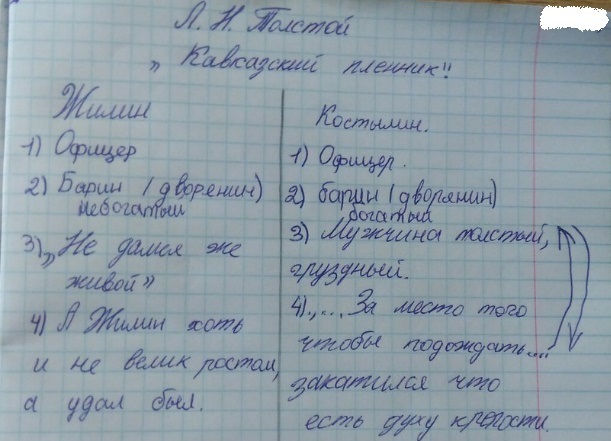 Л. Н. Толстой
„ Кавказский пленник"
Жилин
1) Офицер
2) Барин (дворенин)
небогатый
3) „Не дамся же
живой"
4) А Жилин хоть
и не велик ростом,
а удал был.
Костылин.
1) Офицер.
2) барин (дворянин)
богатый
3) Мужчина толстый,
груздный.
4) „... За место того
чтобы подождать....
закатился что
есть духу крепости.